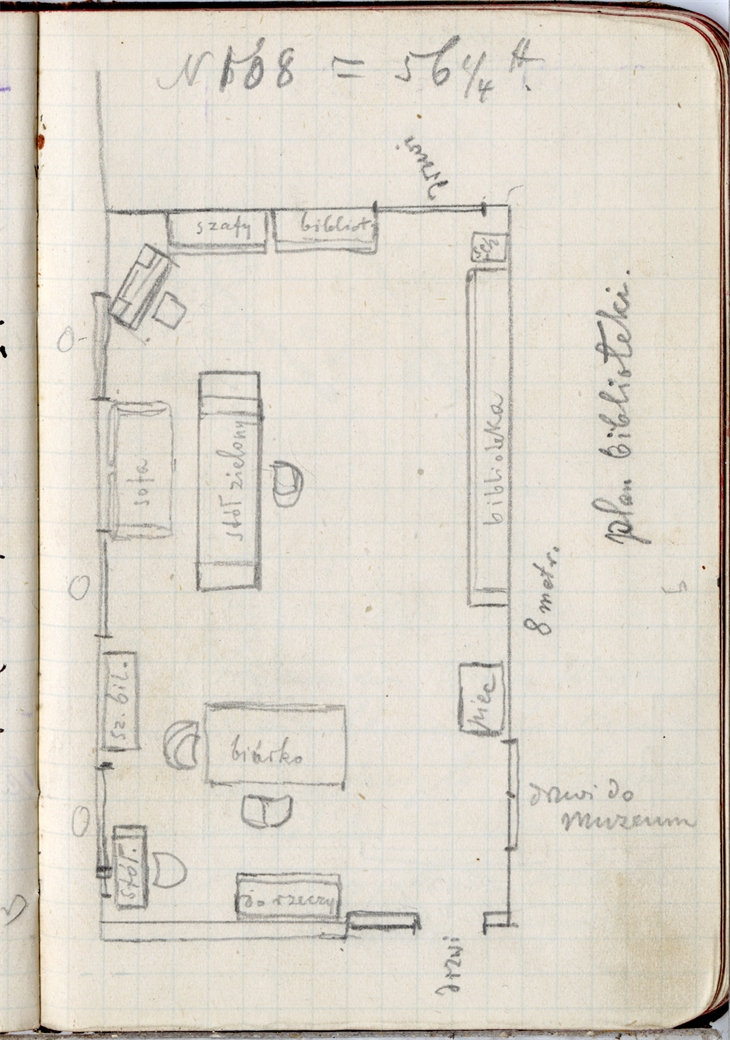 = 56 1/4 #.
drzwi
szafy
bibliot.
plan biblioteki.
sofa
stół zielony
biblioteka
8 metr.
sz. bil.
piec
biurko
drzwi do
Muzeum
stół.
do rzeczy
drzwi